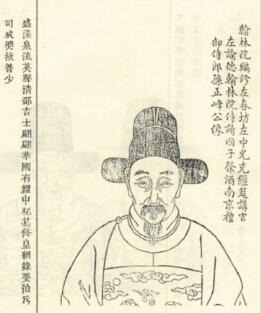 翰林院編脩左春坊左中允充經筵講官
左諭德翰林院侍讀國子祭酒南京禮
部侍郎孫正峰公像
盛藻泉流英聲清邵吉士翩翩華國有耀中秘修皇綱錄要洎
司成樂少